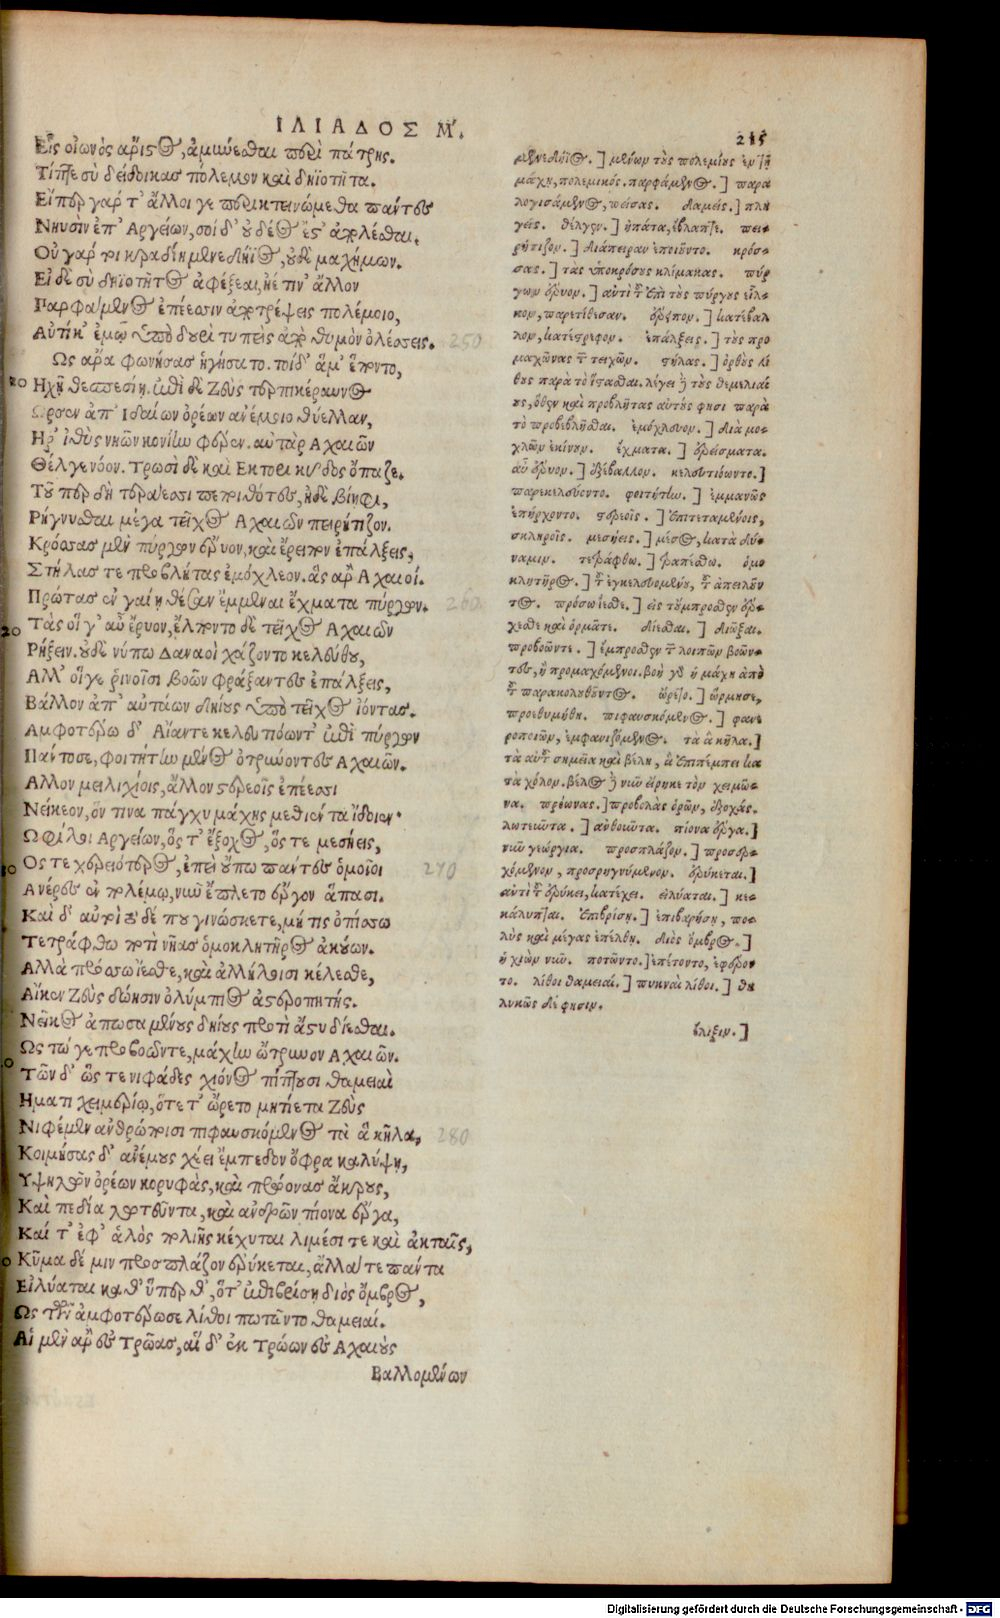 ΙΛΙΑΔΟΣ Μ.
215
Εἷς οἰωνὸς ἄριστος, ἀμύνεσθαι περὶ πάτρης.
Τίπτε σὺ δείδοικας πόλεμον καὶ δηϊοτῆτα.
Εἴπερ γάρ τ' ἄλλοι γε περικτεινώμεθα πάντες
Νηυσὶν ἐπ' Αργείων, σοὶ δ' οὐ δέος ἔστ' ἀπολέσθαι.
Οὐ γάρ τοι κραδίη μενεδήϊος, οὐδὲ μαχήμων.
Εἰ δὲ σὺ δηϊοτῆτος ἀφέξεαι, ἠέ τιν' ἄλλον
Παρφάμενος ἐπέεσσιν ἀποτρέψεις πολέμοιο,
Αὐτίκ' ἐμῷ ὑπὸ δουρὶ τυπεὶς ἀπὸ θυμὸν ὀλέσσεις. 250
Ως ἄρα φωνήσας ἡγήσατο. τοὶ δ' ἅμ' ἕποντο,
Ηχῇ θεσπεσίῃ. ἐπὶ δὲ Ζεὺς τερπικέραυνος
Ωρσεν ἀπ' Ιδαίων ὀρέων ἀνέμοιο θύελλαν,
Η ῥ' ἰθὺς νηῶν κονίην φέρεν. αὐτὰρ Αχαιῶν
Θέλγε νόον. Τρωσὶ δὲ καὶ Εκτορι κῦδος ὄπαζε.
Τοῦ περ δὴ τεράεσσι πεποιθότες, ἠδὲ βίηφι,
Ρήγνυσθαι μέγα τεῖχος Αχαιῶν πειρήτιζον.
Κρόσσας μὲν πύργων ἔρυον, καὶ ἔρειπον ἐπάλξεις,
Στήλας τε προβλῆτας ἐμόχλεον. ἃς ἄρ' Αχαιοί.
Πρώτας ἐν γαίῃ θέσαν ἔμμεναι ἔχματα πύργων. 260
Τὰς οἵ γ' αὖ ἔρυον, ἔλποντο δὲ τεῖχος Αχαιῶν
Ρήξειν. οὐδέ νύ πω Δαναοὶ χάζοντο κελεύθου,
Αλλ' οἵγε ῥινοῖσι βοῶν φράξαντες ἐπάλξεις,
Βάλλον ἀπ' αὐτάων δηΐους ὑπὸ τεῖχος ἰόντας.
Αμφοτέρω δ' Αἴαντε κελευτιόωντ' ἐπὶ πύργων
Πάντοσε, φοιτήτην μένος ὀτρύνοντες Αχαιῶν.
Αλλον μειλιχίοις, ἄλλον στερεοῖς ἐπέεσσι
Νείκεον, ὅν τινα πάγχυ μάχης μεθιέντα ἴδοιεν·
Ω φίλοι Αργείων, ὅς τ' ἔξοχος, ὅς τε μεσήεις,
Ος τε χερειότερος, ἐπεὶ οὔπω πάντες ὁμοῖοι 270
Ανέρες ἐν πολέμῳ, νῦν ἔπλετο ἔργον ἅπασι.
Καὶ δ' αὐτοὶ τόδέ που γινώσκετε, μή τις ὀπίσσω
Τετράφθω ποτὶ νῆας ὁμοκλητῆρος ἀκούων.
Αλλὰ πρόσσω ἵεσθε, καὶ ἀλλήλοισι κέλεσθε,
Αἴκεν Ζεὺς δώησιν ὀλύμπιος ἀστεροπητής.
Νεῖκος ἀπωσαμένους δηίους προτὶ ἄστυ δίεσθαι.
Ως τώ γε προβοῶντε, μάχην ὤτρυνον Αχαιῶν.
Τῶν δ' ὥς τε νιφάδες χιόνος πίπτουσι θαμειαὶ
Ηματι χειμερίῳ, ὅτε τ' ὤρετο μητίετα Ζεὺς
Νιφέμεν ἀνθρώποισι πιφαυσκόμενος τὰ ἃ κῆλα, 280
Κοιμήσας δ' ἀνέμους χέει ἔμπεδον ὄφρα καλύψῃ,
Υψηλῶν ὀρέων κορυφὰς, καὶ πρώονας ἄκρους,
Καὶ πεδία λωτεῦντα, καὶ ἀνδρῶν πίονα ἔργα,
Καί τ' ἐφ' ἁλὸς πολιῆς κέχυται λιμέσι τε καὶ ἀκταῖς,
Κῦμα δέ μιν προσπλάζον ἐρύκεται, ἄλλά τε πάντα
Εἰλύαται καθ' ὕπερθ', ὅτ' ἐπιβρίσῃ διὸς ὄμβρος,
Ως τῶν ἀμφοτέρωσε λίθοι πωτῶντο θαμειαί.
Αἱ μὲν ἄρ' ἐς Τρῶας, αἱ δ' ἐκ Τρώων ἐς Αχαιοὺς
Βαλλομένων
μενεδήϊος.] μένων τοὺς πολεμίους ἐν τῇ
μάχῃ, πολεμικός. παρφάμενος.] παρα
λογισάμενος, πείσας. δαμείς.] πλη
γείς. θέλγεν.] ἠπάτα, ἔβλαπτε. πει-
ρήτιζον.] διάπειραν ἐποιοῦντο. κρόσ-
σας.] τὰς ὑποκρόσους κλίμακας. πύρ
γων ἔρυον.] ἀντὶ τοῦ ἐπὶ τοὺς πύργους εἷλ-
κον, παρετίθεσαν. ἔρειπον.] κατέβαλ
λον, κατέστρεφον. ἐπάλξεις.] τοὺς προ
μαχῶνας τῶν τειχῶν. στήλας.] ὀρθοὺς λί
θους παρὰ τὸ ἵστασθαι. λέγει δὲ τοὺς θεμελίους
ους, ὅθεν καὶ προβλῆτας αὐτούς φησι παρὰ
τὸ προβεβλῆσθαι. ἐμόχλευον.] διὰ μο-
χλῶν ἐκίνουν. ἔχματα.] ἐρείσματα.
αὖ ἔρυον.] ἐξέβαλλον. κελευτιόωντο.]
παρεκελεύοντο. φοιτήτην.] ἐμμανῶς
ἐπήρχοντο. στερεοῖς.] ἐπιτεταμένοις,
σκληροῖς. μεσήεις.] μέσος, κατὰ δύ-
ναμιν. τετράφθω.] τραπέσθω. ὁμο
κλητῆρος.] τοῦ ἐγκελευομένου, τοῦ ἀπειλοῦν
τος. πρόσω ἵεσθε.] εἰς τοὔμπροσθεν ἔρ-
χεσθε καὶ ὁρμᾶτε. δίεσθαι.] διῶξαι.
προβοῶντε.] ἔμπροσθεν τῶν λοιπῶν βοῶν-
τες, ἢ προμαχόμενοι. βοὴ γὰρ ἡ μάχη ἀπὸ
τοῦ παρακολουθοῦντος. ὤρετο.] ὥρμησε,
προεθυμήθη. πιφαυσκόμενος.] φανε
ροποιῶν, ἐμφανιζόμενος. τὰ ἃ κῆλα.]
τὰ αὐτοῦ σημεῖα καὶ βέλη, ἃ ἐπιπέμπει κα
τὰ χόλον. βέλος δὲ νῦν εἴρηκε τὸν χειμῶ-
να. πρώονας.] προβολὰς ὀρῶν, ἐξοχάς.
λωτεῦντα.] ἀνθοῦντα. πίονα ἔργα.]
νῦν γεώργια. προσπλάζον.] προσερ-
χόμενον, προσρηγνύμενον. ἐρύκεται.]
ἀντὶ τοῦ ἐρύκει, κατέχει. εἰλύαται.] κε-
κάλυπται. ἐπιβρίσῃ.] ἐπιβαρήσῃ, πο-
λὺς καὶ μέγας ἐπέλθῃ. διὸς ὄμβρος.]
ἡ χιὼν νῦν. ποτῶντο.] ἐπέτοντο, ἐφέρον
το. λίθοι θαμειαί.] πυκναὶ λίθοι.] θη
λυκῶς δέ φησιν.
βλίξειν.]
Digitalisierung gefördert durch die Deutsche Forschungsgemeinschaft - DFG